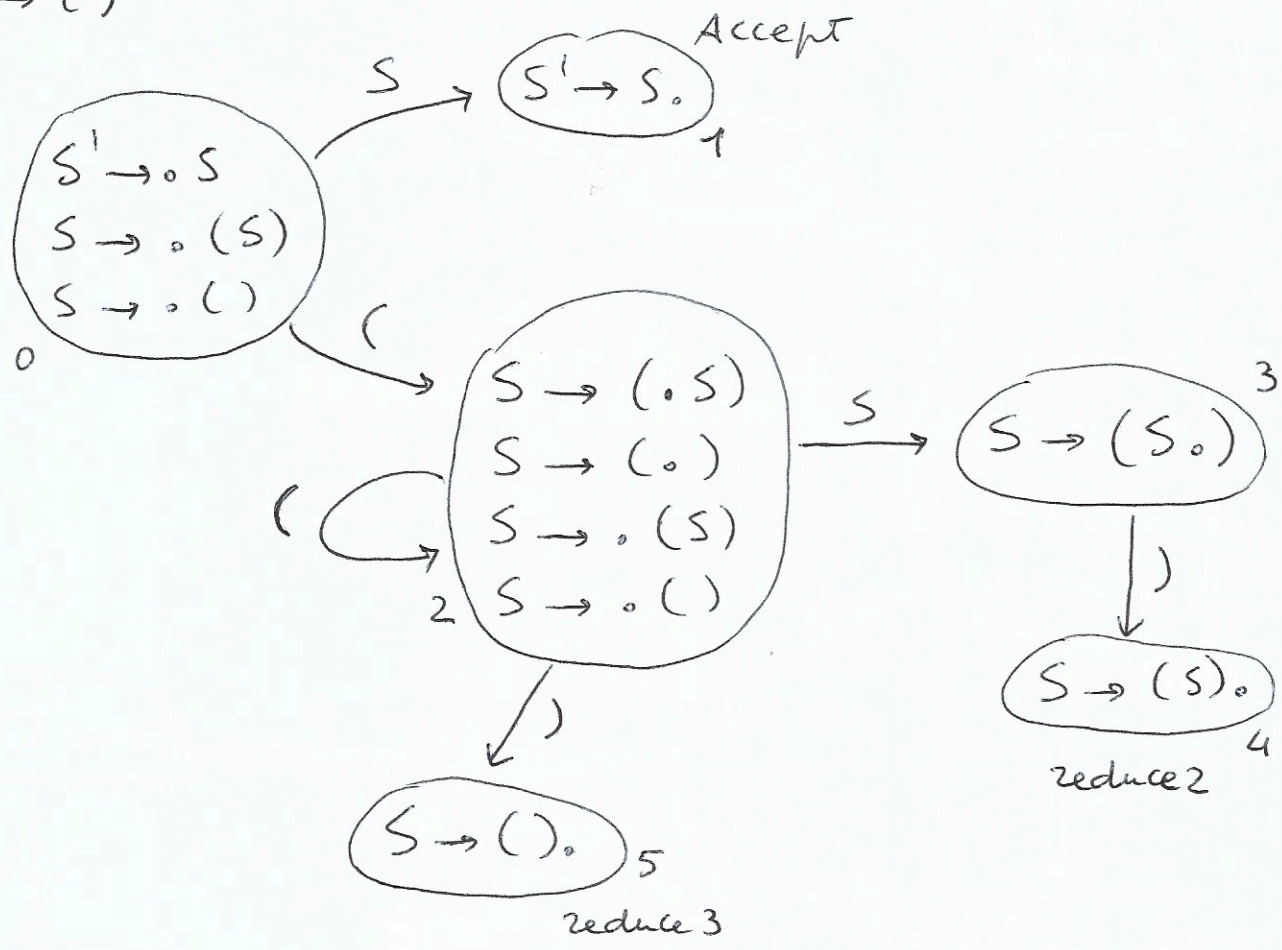 → ( )
Accept
S
S' → S.
1
S' → . S
S → . (S)
S → . ( )
0
(
S → (. S)
S → (.)
S → . (S)
S → . ( )
2
(
S
3
S → (S.)
)
S → (S).
4
reduce 2
)
S → ( ).
5
reduce 3